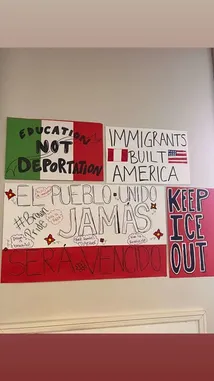 EDUCATION
NOT
DEPORTATION
IMMIGRANTS
BUILT
AMERICA
EL PUEBLO UNIDO
JAMÁS
#Brown
Pride
SERÁ VENCIDO
KEEP
ICE
OUT